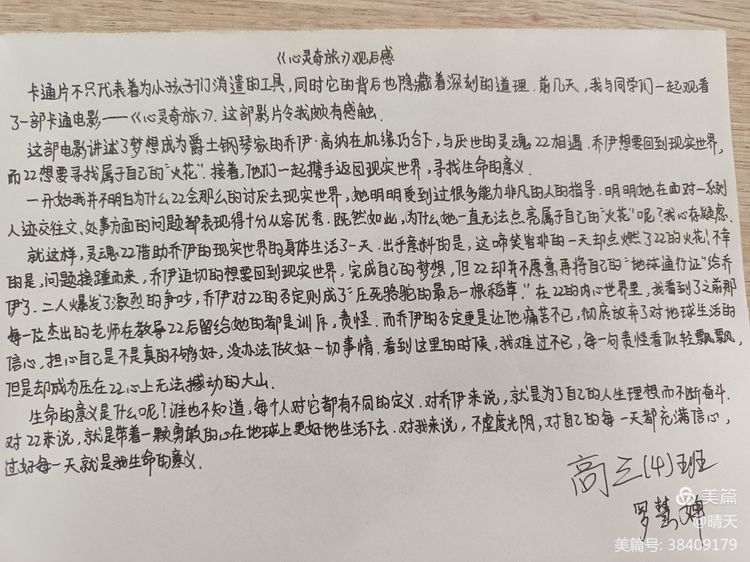 《心灵奇旅》观后感
卡通片不只代表着为小孩子们消遣的工具，同时它的背后也隐藏着深刻的道理．前几天，我与同学们一起观看
了一部卡通电影——《心灵奇旅》．这部影片令我颇有感触．
这部电影讲述了梦想成为爵士钢琴家的乔伊·高纳在机缘巧合下，与厌世的灵魂22相遇．乔伊想要回到现实世界，
而22想要寻找属于自己的“火花”．接着，他们一起携手返回现实世界，寻找生命的意义．
一开始我并不明白为什么22会那么的讨厌去现实世界，她明明受到过很多能力非凡的人的指导．明明她在面对一系列
人迹交往文、处事方面的问题都表现得十分从容优秀．既然如此，为什么她一直无法点亮属于自己的“火花”呢？我心存疑虑．
就这样，灵魂22借助乔伊的现实世界的身体生活了一天．出乎意料的是，这啼笑皆非的一天却点燃了22的火花！不幸
的是，问题接踵而来，乔伊迫切的想要回到现实世界，完成自己的梦想，但22却并不愿意再将自己的“地球通行证”给乔
伊了．二人爆发了激烈的争吵，乔伊对22的否定则成了“压死骆驼的最后一根稻草．”在22的内心世界里，我看到了之前那
每一位杰出的老师在教导22后留给她的都是训斥，责怪．而乔伊的否定更是让他痛苦不已，彻底放弃了对地球生活的
信心，担心自己是不是真的不够好，没办法做好一切事情．看到这里的时候，我难过不已，每一句责怪看似轻飘飘，
但是却成为压在22心上无法撼动的大山．
生命的意义是什么呢？谁也不知道，每个人对它都有不同的定义．对乔伊来说，就是为了自己的人生理想而不断奋斗．
对22来说，就是带着一颗勇敢的心在地球上更好地生活下去．对我来说，不虚度光阴，对自己的每一天都充满信心，
过好每一天就是我生命的意义．
高三(4)班
罗慧婵
美篇
@晴天
美篇号: 38409179